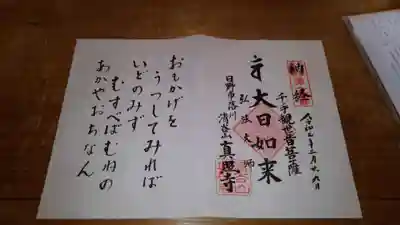 納経
令和七年二月十六日
千手観世音菩薩
大日如来
弘法大師
日野市落川
清谷山真照寺
おもかげを
うつしてみれば
いどのみず
むすべばむねの
あかやおちなん